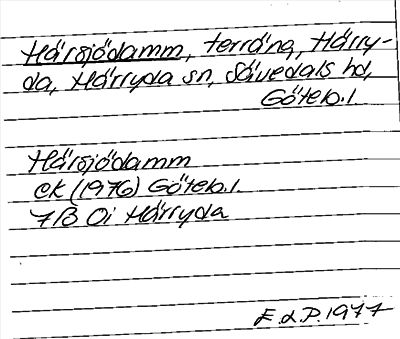 Hårsjödamm, terräng, Härry-
da, Härryda sn, Sävedals hd,
Göteb.l
Hårsjödamm
ek (1976) Göteb.l.
7B 0i Härryda
E.d.P. 1977